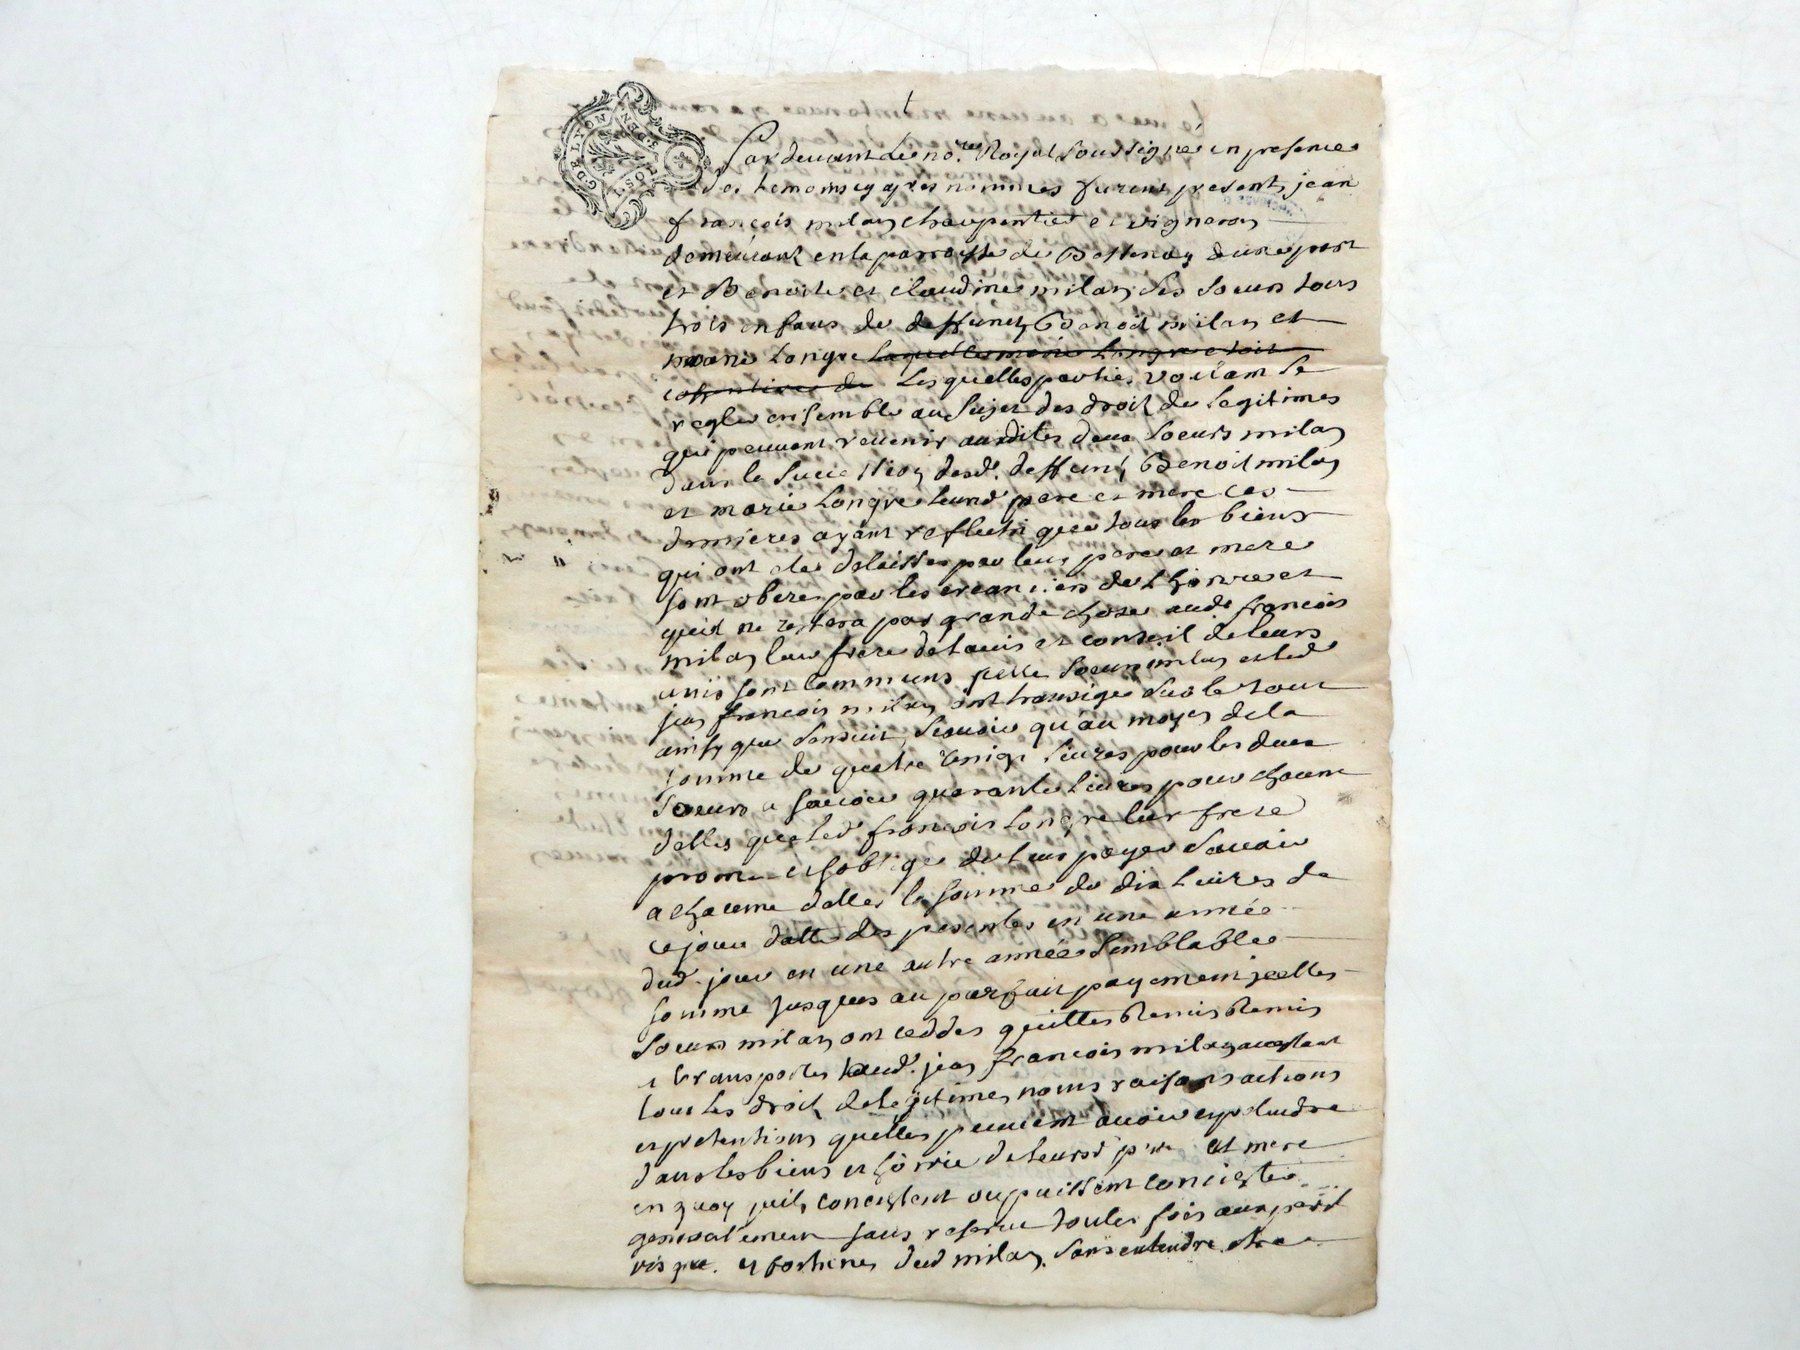 G. DE LYON
Pardevant Le no.re Royal Soussigné en presence
des temoins cy apres nommes furent presents jean
francois milan charpentier et vigneron
demeurant en la parroisse de dune part
et Benoite et claudine milan Ses Soeurs tous
trois enfans de deffunts Benoit milan et
marie Longre laquelle marie Longre etoit
de Lesquelles parties voulant Se
regler ensemble au Sujet des droit de Legitimes
qui peuvent revenir auxdites deux Soeurs milan
dans la Succession desd. deffunts Benoit milan
et marie Longre leurs pere et mere ces
dernieres ayant reflechi que tous les biens
qui ont ete delaisses par leurs pere et mere
sont oberes par les creanciers de Lhoirie et
quil ne restera pas grande chose aud. francois
milan leur frere de Lavis et conseil de leurs
amis communs Soeurs milan et led.
jean francois milan ont transige Sur le tout
ainsy que Sensuit, Scavoir qu'au moyen de la
somme de quatre vingt Livres pour les deux
Soeurs a Scavoir quarante Livres pour chacune
delles que led. francois Longre leur frere
promet et soblige de leur payer Scavoir
a chacune delles la somme de dix Livres de
ce jour datte des presentes en une année
dud. jour en une autre année Semblable
somme jusques au parfait payement jcelles
Soeurs milan ont ceddes quittes Remis Remis
et transportes aud. jean francois milan acceptant
tous les droit de Legitimes noms raisons actions
et pretentions quelles peuvent avoir et pretendre
dans les biens et hoirie de leursd. pere et mere
en quoy quils concistent ou puissent concister
generalement sans reserve toutes fois aux peril
risque et fortunes dud milan. Sans entendre etre